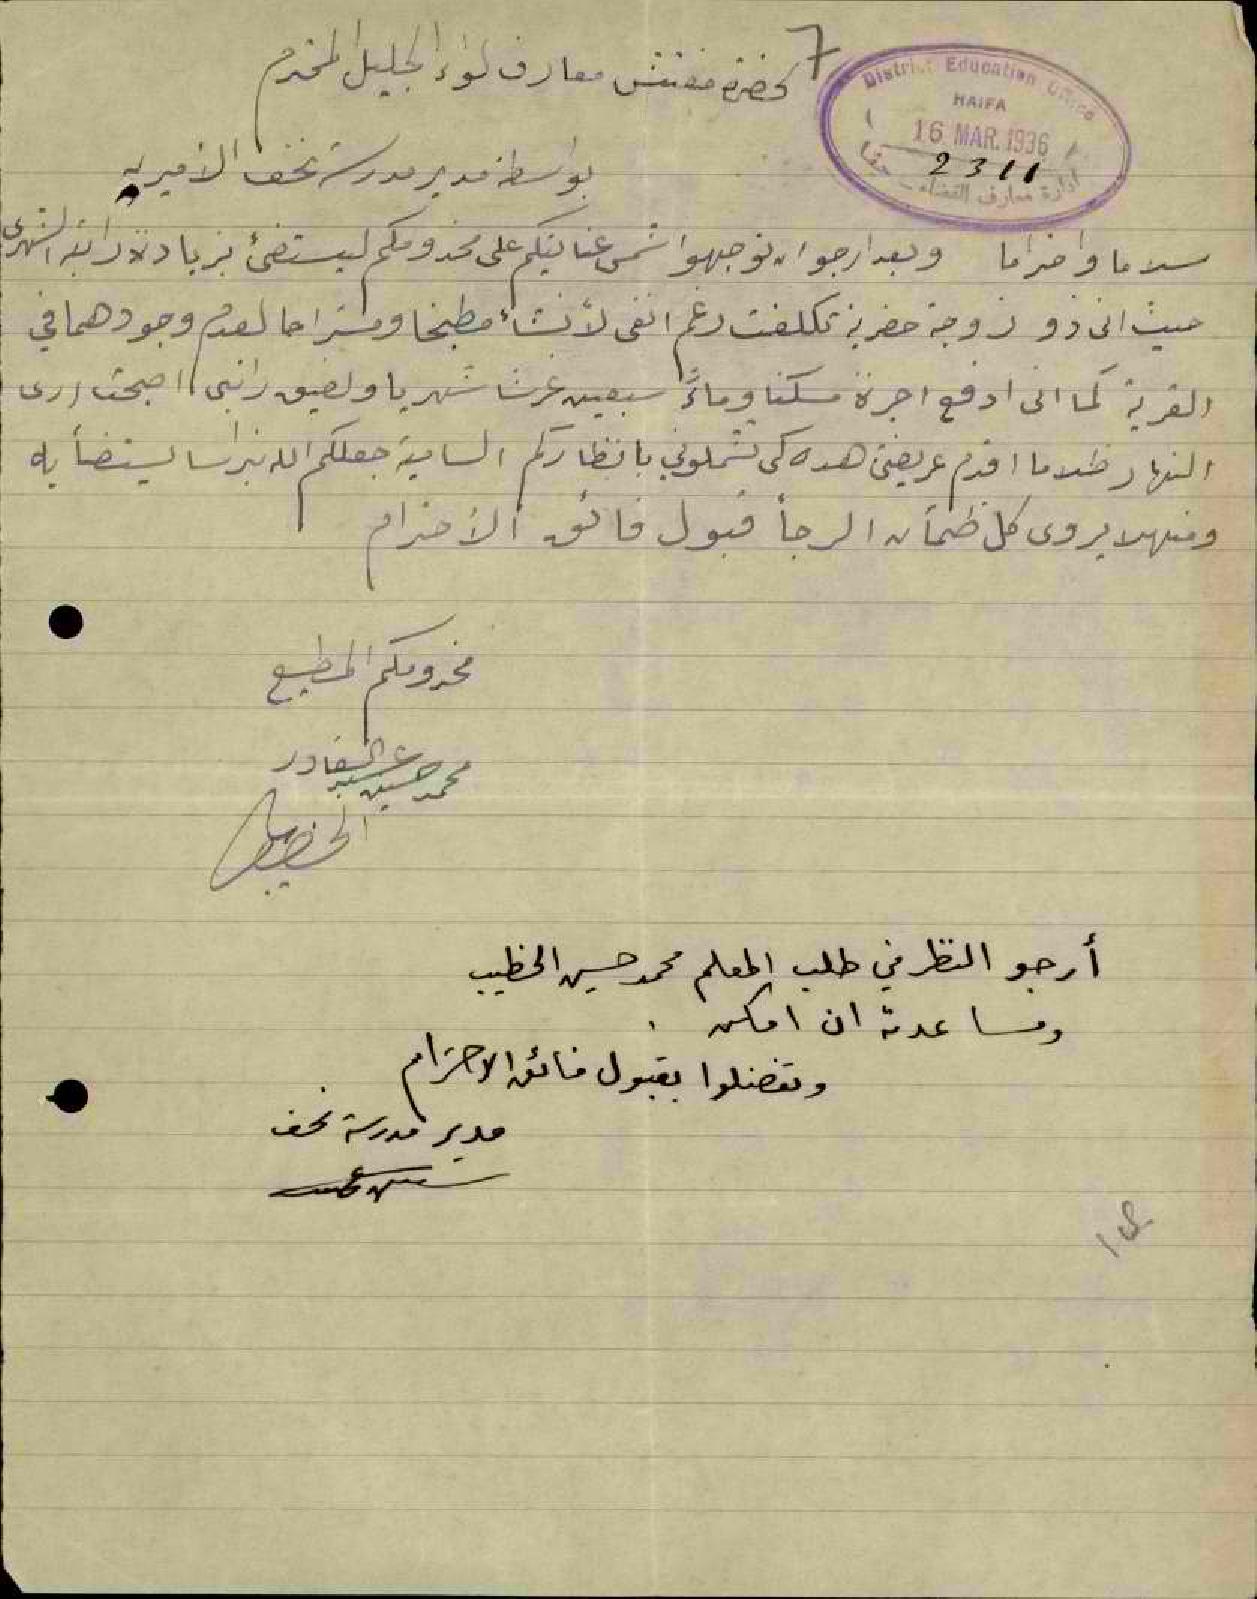 7
District Education Office
HAIFA
16 MAR. 1936
2311
ادارة معارف القضاء - حيفا
لحضرة مفتش معارف لواء الجليل المحترم
بواسطة مدير مدرسة نحف الاميرية
سلاما واحتراما وبعد ارجو ان توجهوا شمس عنايتكم على مخدومكم ليستضئ بزيادة راتبه الشهري
حيث انى ذو زوجة حضرية تكلفت رغم انفى لأنشاء مطبخا ومستراحا لعدم وجودهما في
القرية كما انى ادفع اجرة مسكنا وماءً سبعين غرشا شهريا ولضيق راتبى اصبحت ارى
النهار ظلاما اقدم عريضتى هده كى تشملوني بانظاركم السامية جعلكم الله نبراسا يستضأ به
ومنهلا يروى كل ظمأن الرجأ قبول فائق الأحترام
مخدومكم المطيع
محمد حسين عبد القادر
الخطيب
أرجو النظر في طلب المعلم محمد حسين الخطيب
ومساعدته ان امكن .
وتفضلوا بقبول فائق الاحترام
مدير مدرسة نحف